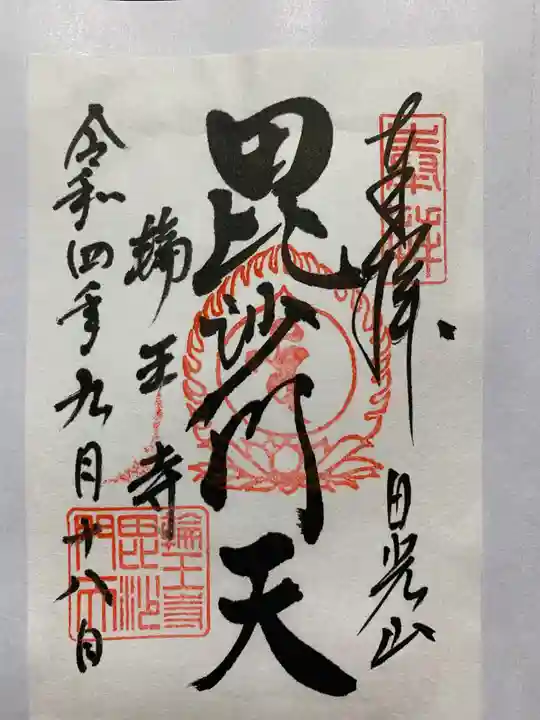 奉拝
奉拝
日光山
毘沙門天
輪王寺
輪王寺
毘沙
門天
令和四年九月十八日